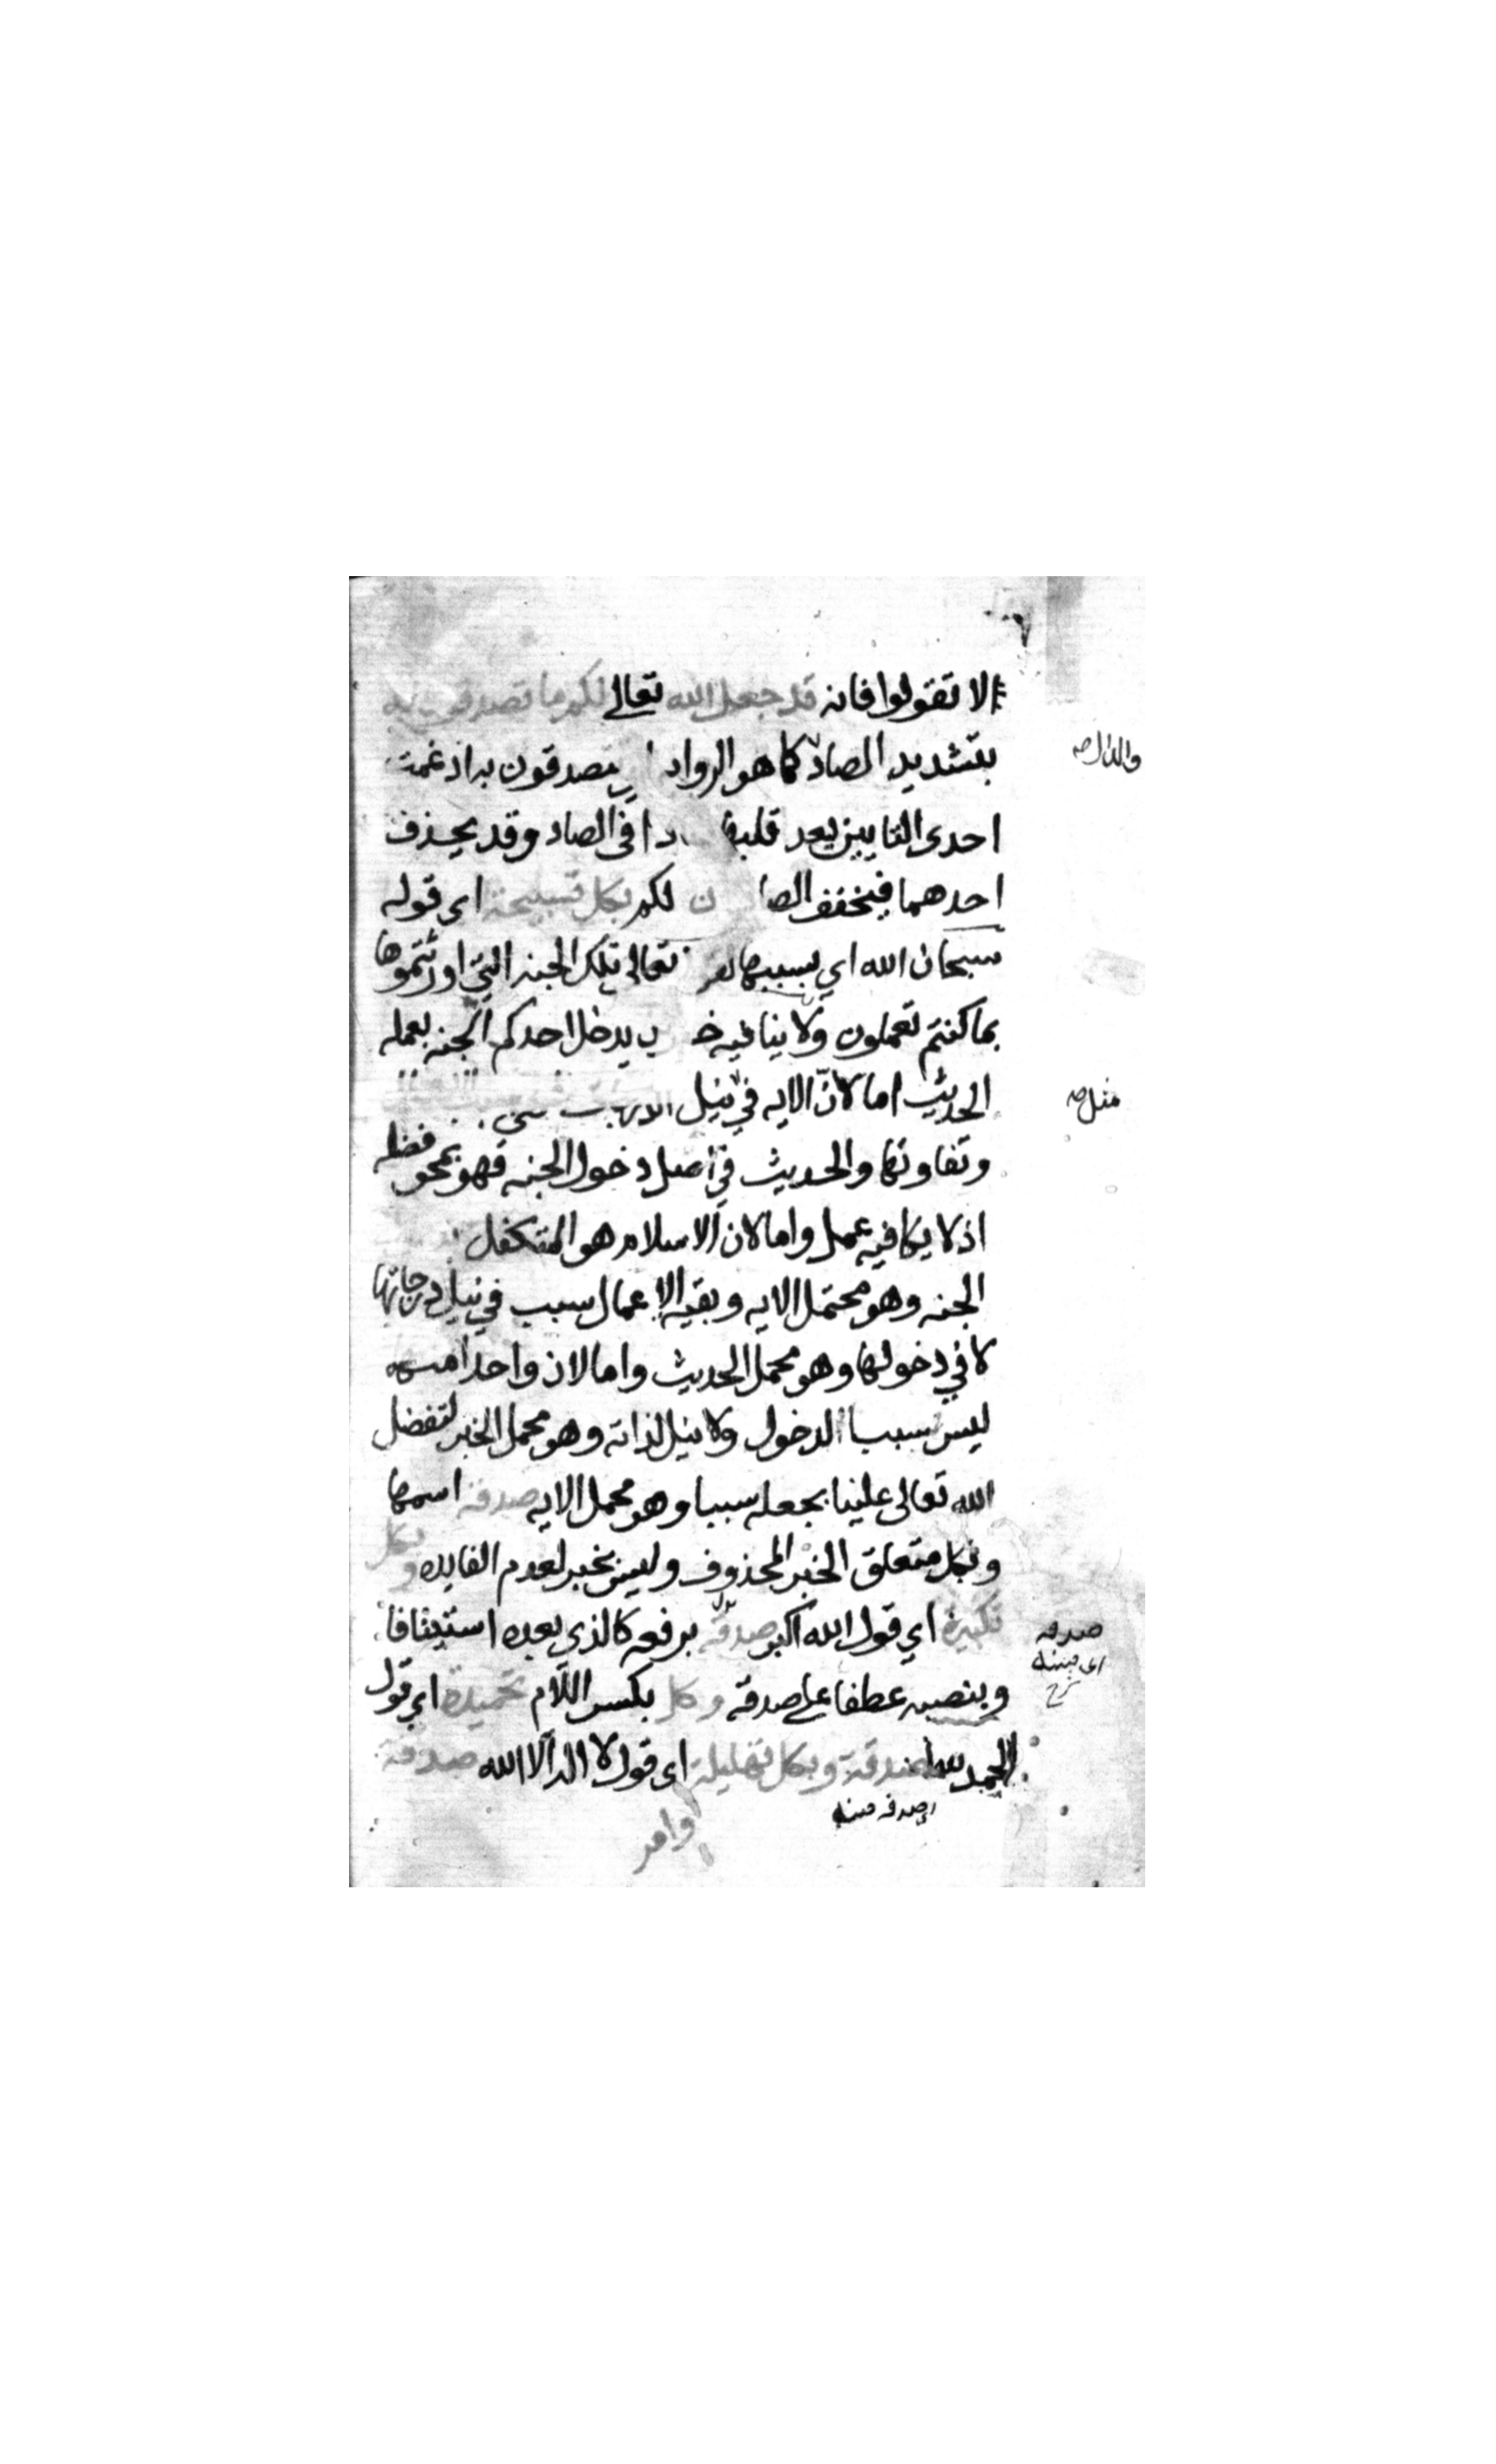 الا تقولوا فانه قد جعل الله تعالى لكم ما تصدقون به
بتشديد الصاد كما هو الرواية تصدقون به ادغمت
والدال صح
احدى التايين بعد قلبها في الصاد وقد يحذف
احدهما فيخفف الصا ن لكم بكل تسبيحة اى قوله
سبحان الله اي بسببها تعالى تلك الجنه التي اورثتموها
بما كنتم تعملون ولا ينافيه يدخل احدكم الجنه بعمله
الحديث اما لان الايه في نيل
وتفاوتها والحديث في اصل دخول الجنه فهو بمحو فضله
اذ لا يكافيه عمل واما لان الاسلام هو المتكفل
الجنه وهو محتمل الايه وبقيه الاعمال سبب في نيل درجاتها
لا في دخولها وهو محمل الحديث واما لان واحدا منهم
ليس سببا الدخول ولا نيل لذاته وهو محمل الخبر لتفضل
الله تعالى علينا بجعله سببا وهو محمل الايه صدقة اسمها
وبكل متعلق الخبر المحذوف وليس بخبر لعدم الفايده وبكل
تكبيرة اي قول الله اكبر صدقة برفعه كالذي بعده استيثافا
صدقه
وبنصبه عطفا على صدقة وكل بكسر اللام تحميدة اي قول
الحمد لله صدقة وبكل تهليلة اى قول لا اله الا الله صدقة
وامر